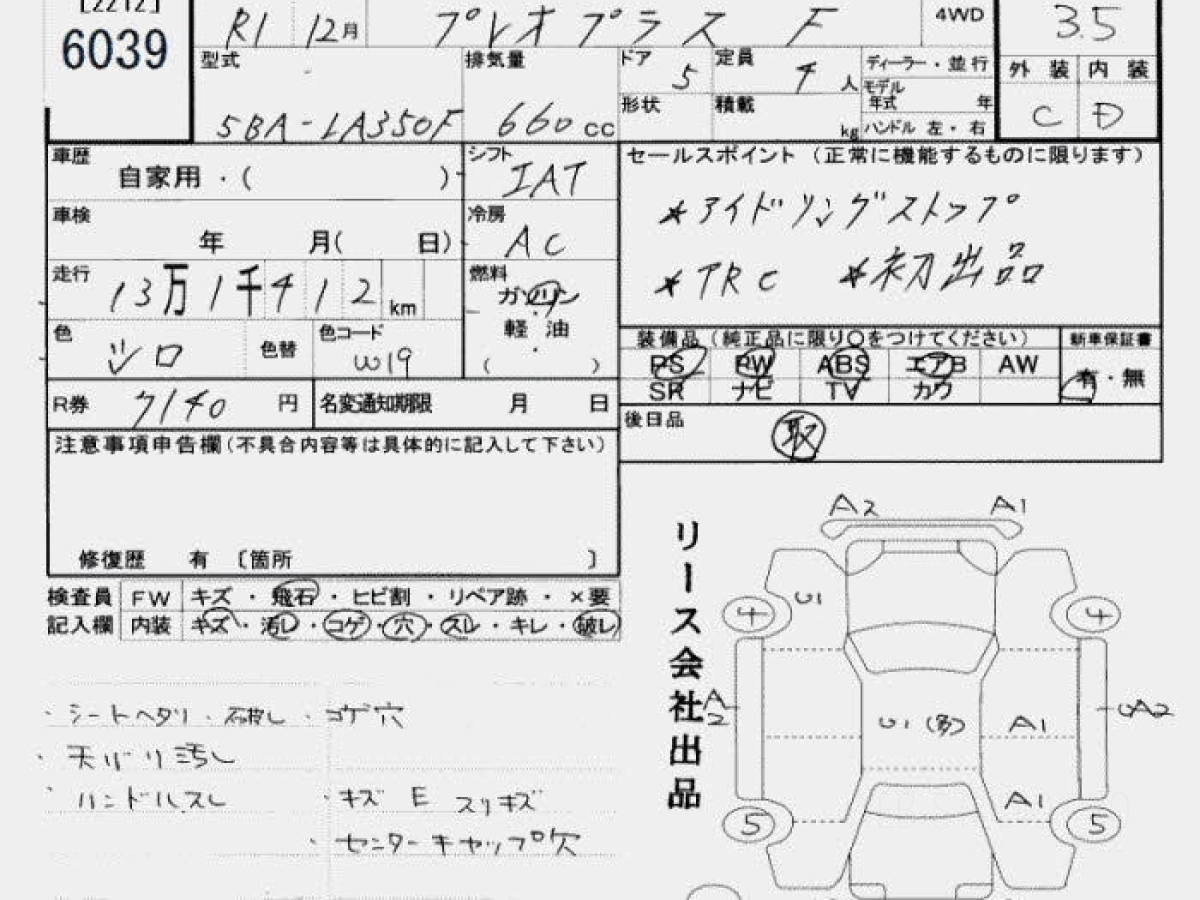 [2212]
6039
R1 12月 プレオプラス F 4WD
3.5
型式 排気量 ドア 5 定員 4 人 ディーラー・並行
モデル年式 年
外装 内装
5BA-LA350F 660cc 形状 積載 kg ハンドル 左・右
C D
車歴 自家用・( )
シフト IAT
セールスポイント(正常に機能するものに限ります)
車検 年 月( 日)
冷房 AC
*アイドリングストップ
走行 13万1千412km
燃料 ガソリン
軽油
( )
*TRC *初出品
色 シロ 色替 色コード W19
装備品(純正品に限り○をつけてください) 新車保証書
PS PW ABS エアB AW 有・無
SR ナビ TV カワ
R券 7140円 名変通知期限 月 日
後日品 取
注意事項申告欄(不具合内容等は具体的に記入して下さい)
修復歴 有 〔箇所 〕
検査員 FW キズ・飛石・ヒビ割・リペア跡・×要
記入欄 内装 キズ・汚レ・コゲ・穴・スレ・キレ・破レ
・シートヘタリ・破レ・コゲ穴
・天バリ汚レ
・ハンドルスレ ・キズ E スリキズ
・センターキャップ穴
リース会社出品
A2 A1
U1
4 4
A2 U1(多) A1 UA2
A1
5 5